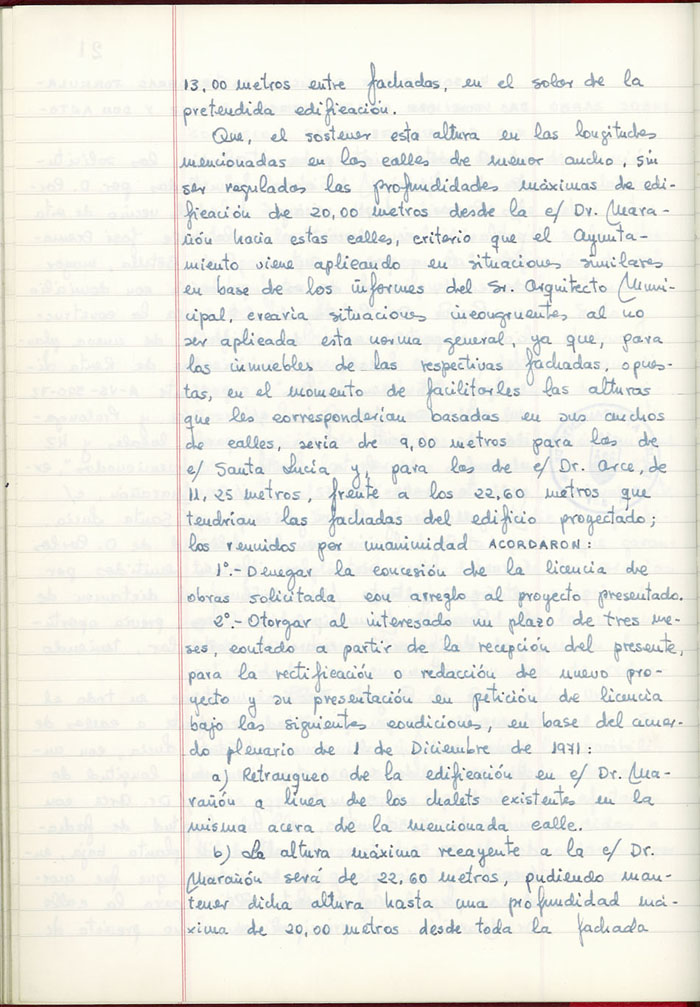 13,00 metros entre fachadas, en el solar de la
pretendida edificación.
Que, el sostener esta altura en las longitudes
mencionadas en las calles de menor ancho, sin
ser reguladas las profundidades máximas de edi-
ficación de 20,00 metros desde la c/ Dr. Mara-
ñón hacia estas calles, criterio que el Ayunta-
miento viene aplicando en situaciones similares
en base de los informes del Sr. Arquitecto Muni-
cipal, crearia situaciones incongruentes al no
ser aplicada esta norma general, ya que, para
los inmuebles de las respectivas fachadas, opues-
tas, en el momento de facilitarles las alturas
que les corresponderían basadas en sus anchos
de calles, seria de 9,00 metros para los de
c/ Santa Lucía y, para los de c/ Dr. Arce, de
11,25 metros, frente a los 22,60 metros que
tendrían las fachadas del edificio proyectado;
los reunidos por unanimidad ACORDARON:
1º.- Denegar la concesión de la licencia de
obras solicitada con arreglo al proyecto presentado.
2º.- Otorgar al interesado un plazo de tres me-
ses, contado a partir de la recepción del presente,
para la rectificación o redacción de nuevo pro-
yecto y su presentación en petición de licencia
bajo las siguientes condiciones, en base del acuer-
do plenario de 1 de Diciembre de 1971:
a) Retranqueo de la edificación en c/ Dr. Ma-
rañón a línea de los chalets existentes en la
misma acera de la mencionada calle.
b) La altura máxima recayente a la c/ Dr.
Marañón será de 22,60 metros, pudiendo man-
tener dicha altura hasta una profundidad má-
xima de 20,00 metros desde toda la fachada